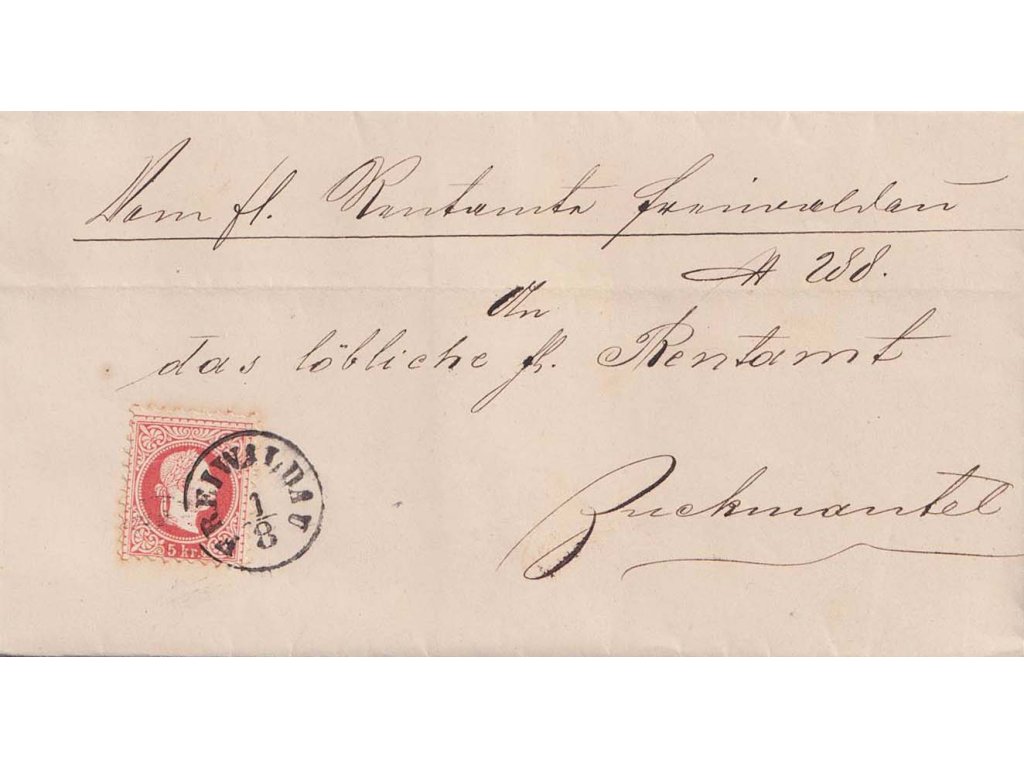 Vom fl. Rentamte Freiwaldau
№ 238.
An
das löbliche fl. Rentamt
Zuckmantel
FREIWALDAU
1/8
5 kr.